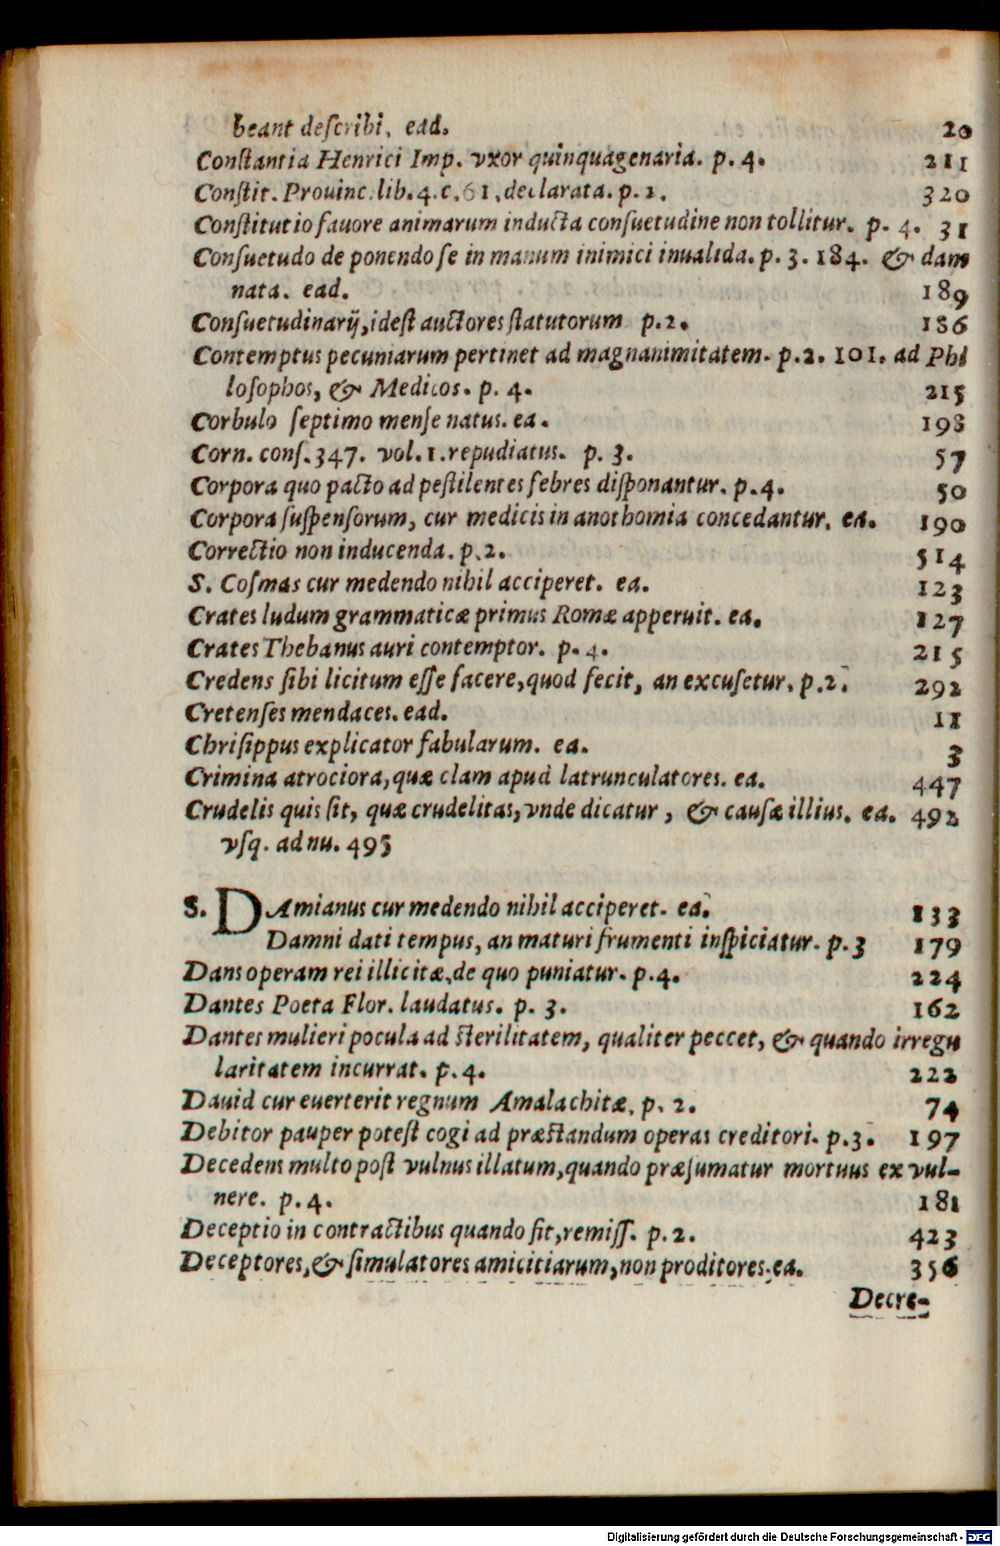 beant deſcribi, ead. 20
Conſtantia Henrici Imp. vxor quinquagenaria. p. 4. 211
Conſtit. Prouinc. lib. 4. c. 61, declarata. p. 1. 320
Conſtitutio fauore animarum inducta conſuetudine non tollitur. p. 4. 31
Conſuetudo de ponendo ſe in manum inimici inualida. p. 3. 184. & dam
nata. ead. 189
Conſuetudinarij, ideſt auctores ſtatutorum p. 2. 186
Contemptus pecuniarum pertinet ad magnanimitatem. p. 2. 101. ad Phi
loſophos, & Medicos. p. 4. 215
Corbulo ſeptimo menſe natus. ea. 198
Corn. conſ. 347. vol. 1. repudiatus. p. 3. 57
Corpora quo pacto ad peſtilentes febres diſponantur. p. 4. 50
Corpora ſuſpenſorum, cur medicis in anothomia concedantur. ea. 190
Correctio non inducenda. p. 2. 514
S. Coſmas cur medendo nihil acciperet. ea. 123
Crates ludum grammaticæ primus Romæ apperuit. ea. 127
Crates Thebanus auri contemptor. p. 4. 215
Credens ſibi licitum eſſe facere, quod fecit, an excuſetur. p. 2. 292
Cretenſes mendaces. ead. 11
Chriſippus explicator fabularum. ea. 3
Crimina atrociora, quæ clam apud latrunculatores. ea. 447
Crudelis quis ſit, quæ crudelitas, vnde dicatur, & cauſæ illius. ea. 492
vſq. ad nu. 495
S. DAmianus cur medendo nihil acciperet. ea. 133
Damni dati tempus, an maturi frumenti inſpiciatur. p. 3 179
Dans operam rei illicitæ, de quo puniatur. p. 4. 224
Dantes Poeta Flor. laudatus. p. 3. 162
Dantes mulieri pocula ad ſterilitatem, qualiter peccet, & quando irregu
laritatem incurrat. p. 4. 222
Dauid cur euerterit regnum Amalachitæ. p. 2. 74
Debitor pauper poteſt cogi ad præſtandum operas creditori. p. 3. 197
Decedens multo poſt vulnus illatum, quando præſumatur mortuus ex vul-
nere. p. 4. 181
Deceptio in contractibus quando fit, remiſſ. p. 2. 423
Deceptores, & ſimulatores amicitiarum, non proditores. ea. 356
Decre-
Digitalisierung gefördert durch die Deutsche Forschungsgemeinschaft - DFG